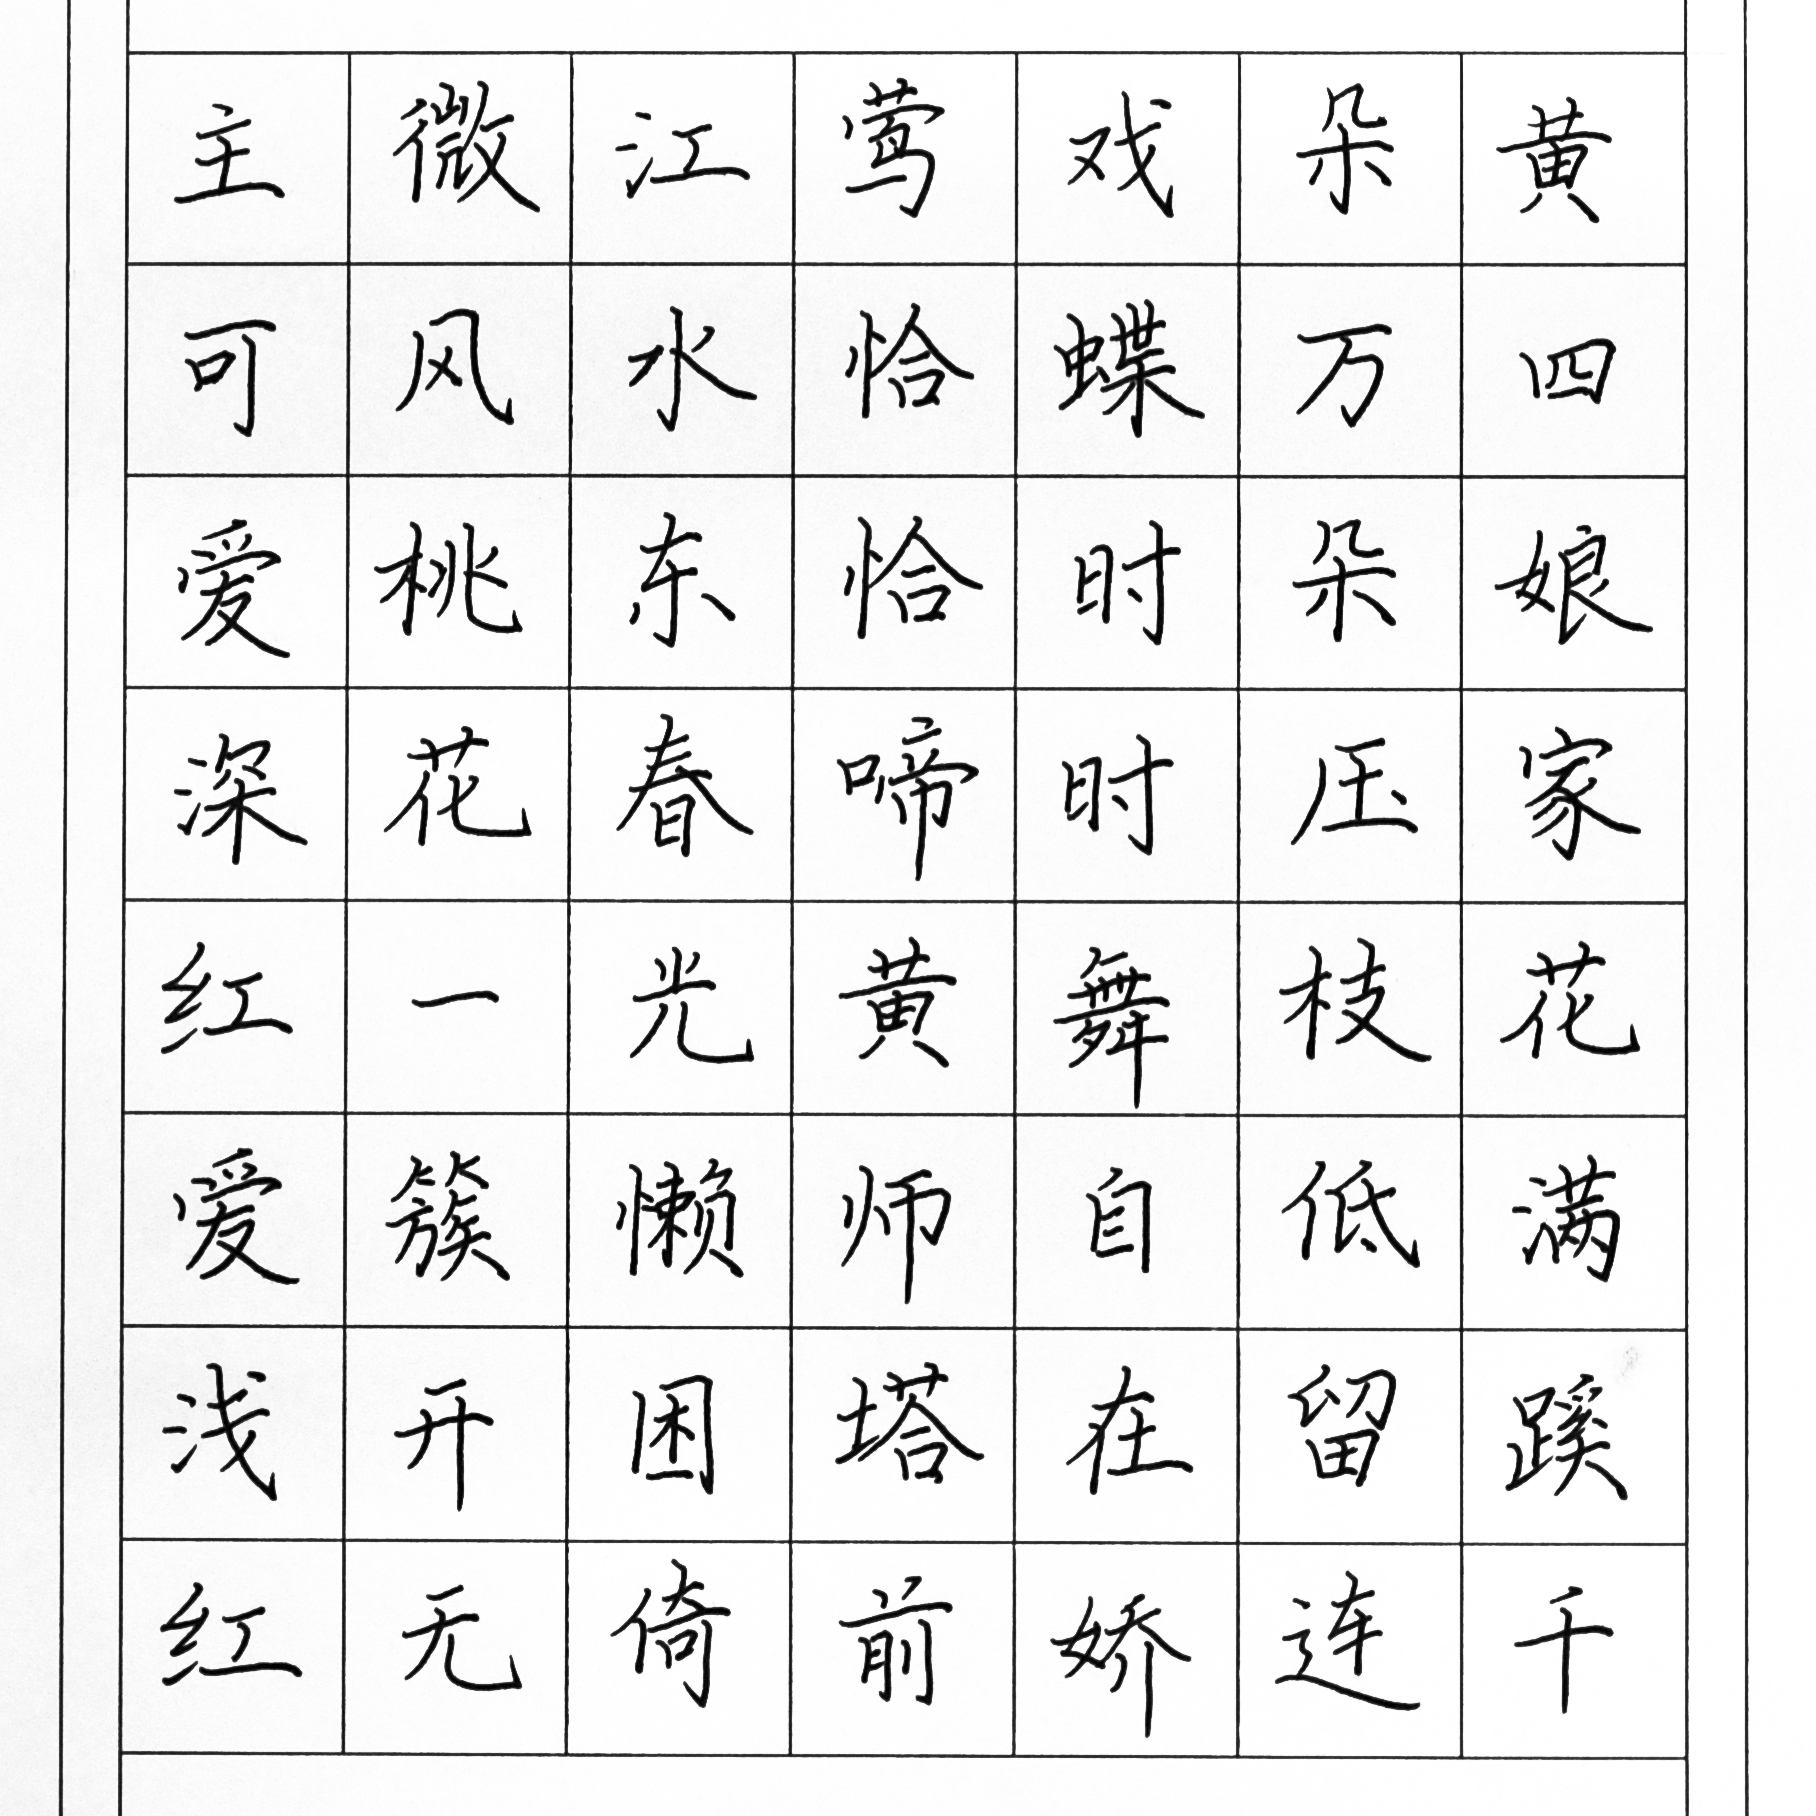 黄四娘家花满蹊千
朵万朵压枝低留连
戏蝶时时舞自在娇
莺恰恰啼黄师塔前
江水东春光懒困倚
微风桃花一簇开无
主可爱深红爱浅红